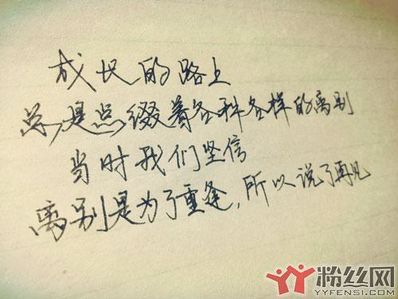 成长的路上
总是点缀着各种各样的离别
当时我们坚信
离别是为了重逢,所以说了再见
粉丝网
YYFENSI.COM